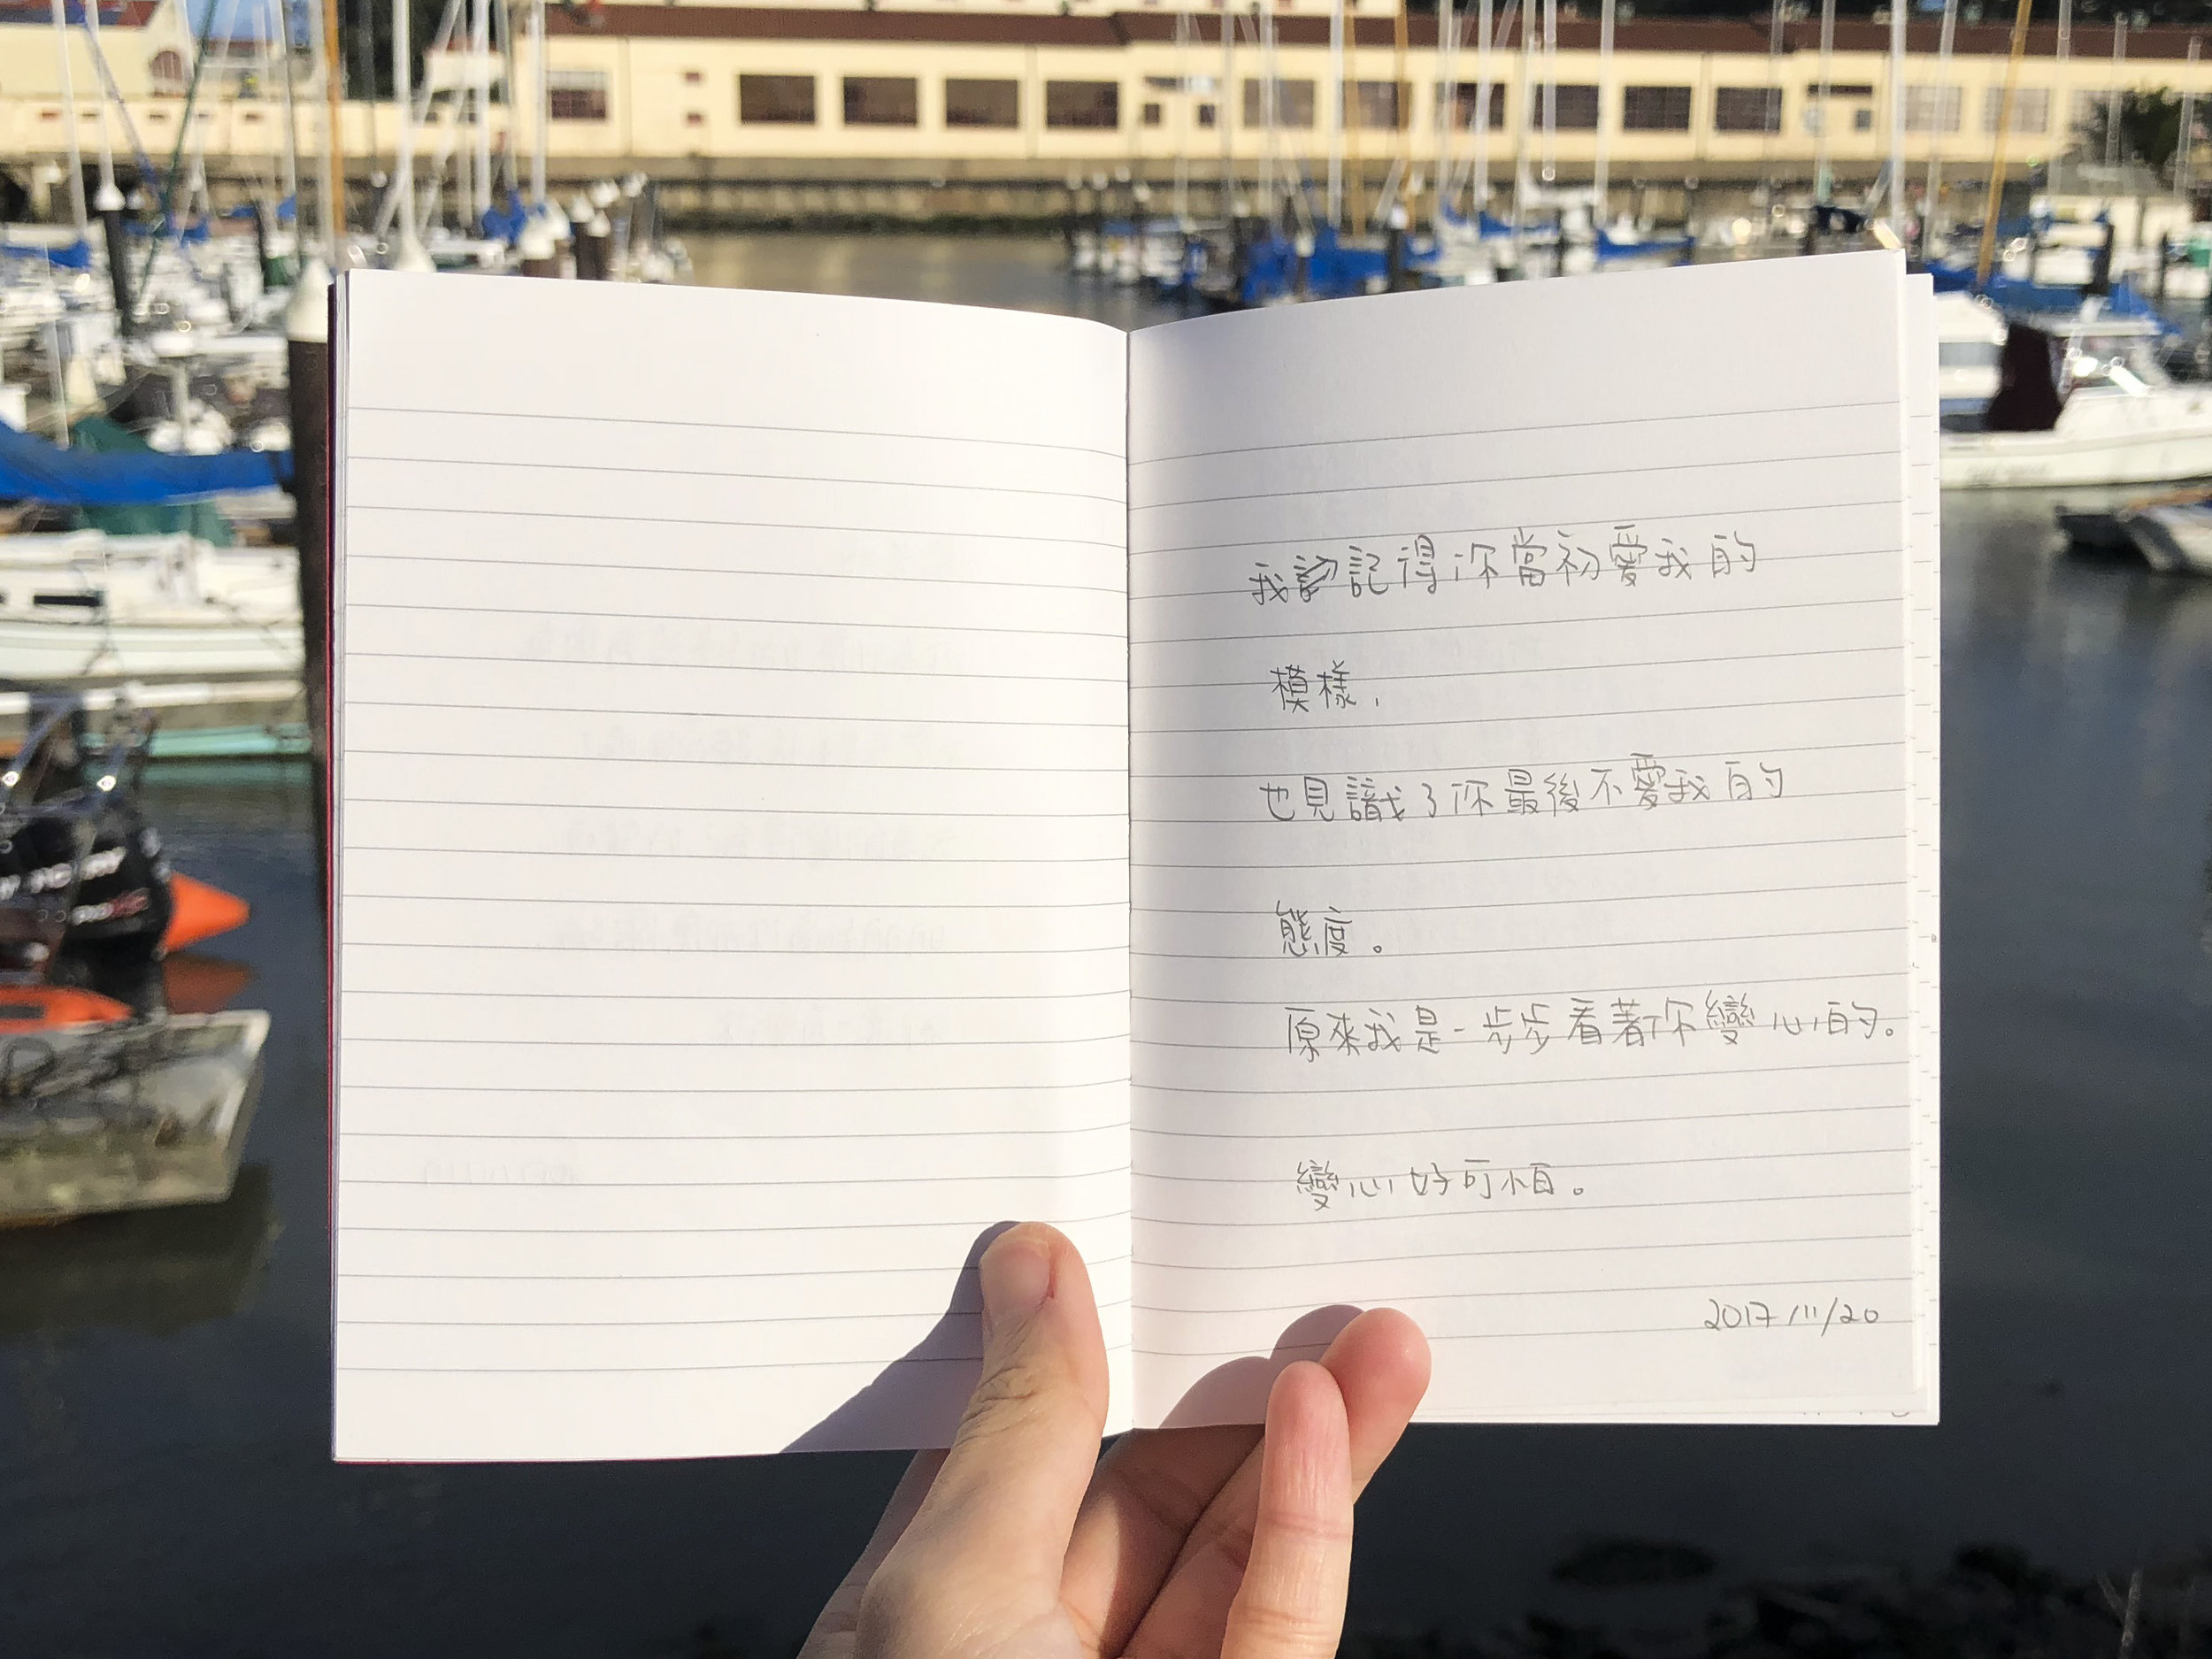 我記得你當初愛我的
模樣，
也見識了你最後不愛我的
態度。
原來我是一步步看著你變心的。
變心好可怕。
2017/11/20